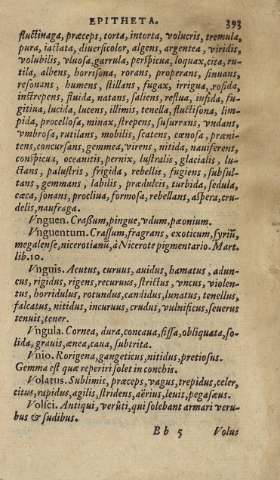 EPITHETA. 393
fluctinaga, præceps, torta, intorta, volucris, tremula,
pura, iactata, diuersicolor, algens, argentea, viridis,
volubilis, vluosa, garrula, perspicua, loquax, cita, ru-
tila, albens, horrisona, rorans, properans, sinuans,
resonans, humens, stillans, fugax, irrigua, rosida,
instrepens, fluida, natans, saliens, reflua, infida, fu-
gitiua, lucida, lucens, illimis, tenella, fluctisona, lim-
pida, procellosa, minax, strepens, susurrans, vndans,
vmbrosa, rutilans, mobilis, scatens, cœnosa, præni-
tens, concursans, gemmea, virens, nitida, nauiferens,
conspicua, oceanitis, pernix, lustralis, glacialis, lu-
ctans, palustris, frigida, rebellis, fugiens, subsul-
tans, gemmans, labilis, prædulcis, turbida, sedula,
cæca, sonans, procliua, formosa, rebellans, aspera, cru-
delis, naufraga.
Vnguen. Crassum, pingue, vdum, pæonium.
Vnguentum. Crassum, fragrans, exoticum, syriū,
megalense, nicerotianū, à Nicerote pigmentario. Mart.
lib. 10.
Vnguis. Acutus, curuus, auidus, hamatus, adun-
cus, rigidus, rigens, recuruus, strictus, vncus, violen-
tus, horridulus, rotundus, candidus, lunatus, tenellus,
falcatus, nitidus, incuruus, crudus, vulnificus, seuerus
tenuit, tener.
Vngula. Cornea, dura, concaua, fissa, obliquata, so-
lida, grauis, ænea, caua, subtrita.
Vnio. Rorigena, gangeticus, nitidus, pretiosus.
Gemma est quæ reperiri solet in conchis.
Volatus. Sublimis, præceps, vagus, trepidus, celer,
citus, rapidus, agilis, stridens, aërius, leuis, pegaseus.
Volsci. Antiqui, veruti, qui solebant armari veru-
bus & sudibus.
B b 5 Volus